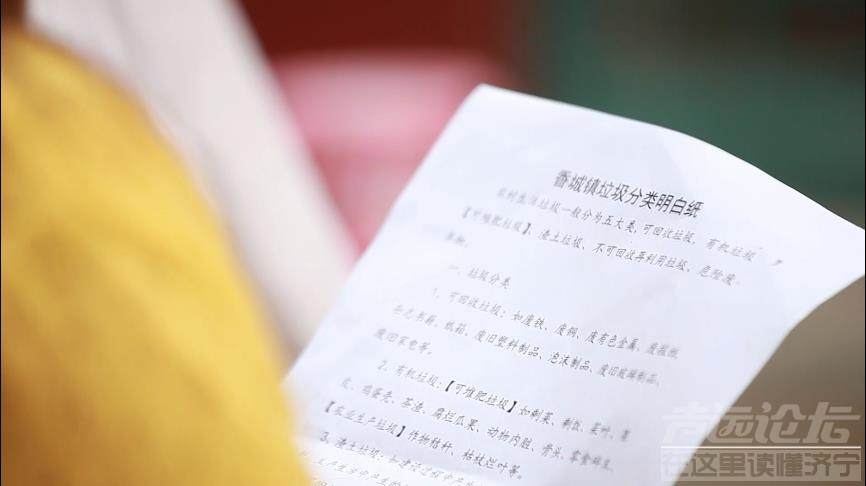 香城镇垃圾分类明白纸
农村生活垃圾一般分为五大类,可回收垃圾,有机垃圾
【可堆肥垃圾】、渣土垃圾、不可回收再利用垃圾、危险废
弃物。
一、垃圾分类
1、可回收垃圾:如废铁、废铜、废有色金属、废报纸、
杂志书籍、纸箱、废旧塑料制品、泡沫制品、废旧玻璃制品、
废旧家电等。
2、有机垃圾:【可堆肥垃圾】如剩菜、剩饭、菜叶、果
皮、鸡蛋壳、茶渣、腐烂瓜果、动物内脏、骨头、零食碎末、
【农业生产垃圾】作物秸秆、枯枝烂叶等。
3、渣土垃圾:如建设过程中产生
生产生活中产生的
论坛
在这里读懂济宁